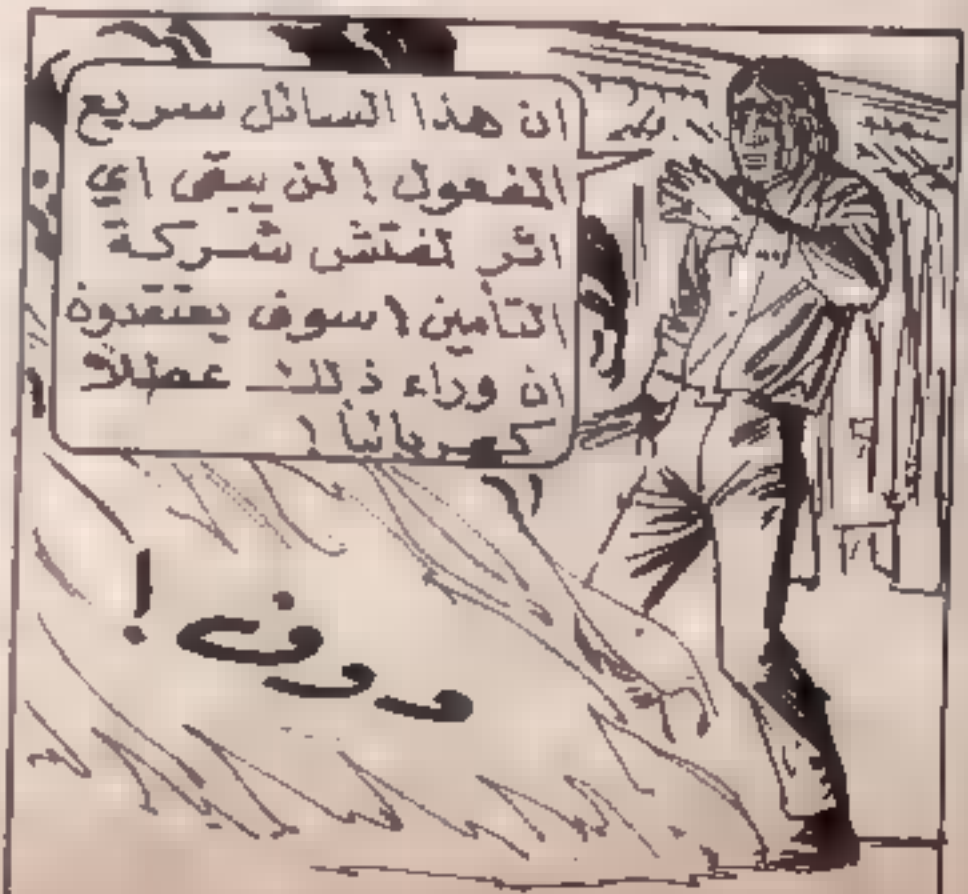 ان هذا السائل سريع
المفعول ! لن يبقى اي
اثر لمفتش شركة
التأمين ! سوف يعتقدون
ان وراء ذلك عطلاً
كهربائياً !